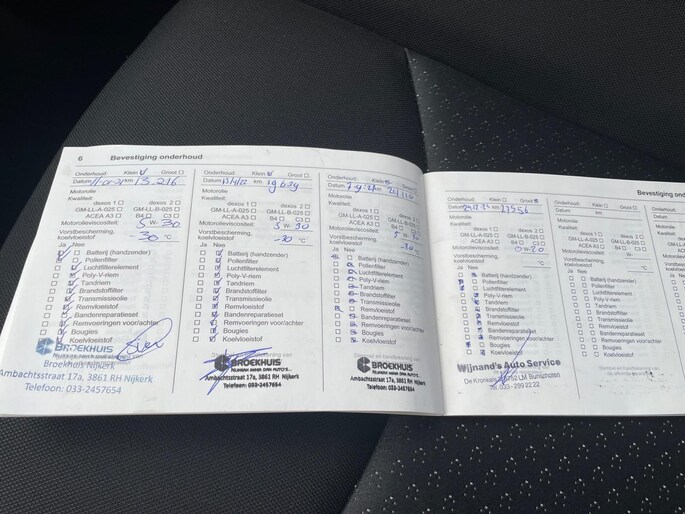 6 Bevestiging onderhoud
Onderhoud: Klein Groot
Datum km 13.216
Motorolie
Kwaliteit:
dexos 1 dexos 2
GM-LL-A-025 GM-LL-B-025
ACEA A3 B4 C3
Motorolieviscositeit: 5 W- 30
Vorstbescherming,
koelvloeistof -30 °C
Ja Nee
Batterij (handzender)
Pollenfilter
Luchtfilterelement
Poly-V-riem
Tandriem
Brandstoffilter
Transmissieolie
Remvloeistof
Bandenreparatieset
Remvoeringen voor/achter
Bougies
Koelvloeistof
BROEKHUIS
Broekhuis Nijkerk
Ambachtsstraat 17a, 3861 RH Nijkerk
Telefoon: 033-2457654
Onderhoud: Klein Groot
Datum km
Motorolie
Kwaliteit:
dexos 1 dexos 2
GM-LL-A-025 GM-LL-B-025
ACEA A3 B4 C3
Motorolieviscositeit: 5 W- 30
Vorstbescherming,
koelvloeistof -30 °C
Ja Nee
Batterij (handzender)
Pollenfilter
Luchtfilterelement
Poly-V-riem
Tandriem
Brandstoffilter
Transmissieolie
Remvloeistof
Bandenreparatieset
Remvoeringen voor/achter
Bougies
Koelvloeistof
BROEKHUIS
Ambachtsstraat 17a, 3861 RH Nijkerk
Telefoon: 033-2457654
Onderhoud: Klein Groot
Datum km
Motorolie
Kwaliteit:
dexos 1 dexos 2
GM-LL-A-025 GM-LL-B-025
ACEA A3 B4 C3
Motorolieviscositeit: 5 W-
Vorstbescherming,
koelvloeistof °C
Ja Nee
Batterij (handzender)
Pollenfilter
Luchtfilterelement
Poly-V-riem
Tandriem
Brandstoffilter
Transmissieolie
Remvloeistof
Bandenreparatieset
Remvoeringen voor/achter
Bougies
Koelvloeistof
BROEKHUIS
Ambachtsstraat 17a, 3861 RH Nijkerk
Telefoon: 033-2457654
Bevestiging on
Onderhoud: Klein Groot
Datum km
Motorolie
Kwaliteit:
dexos 1 dexos 2
GM-LL-A-025 GM-LL-B-025
ACEA A3 B4 C3
Motorolieviscositeit: W-20
Vorstbescherming,
koelvloeistof °C
Ja Nee
Batterij (handzender)
Pollenfilter
Luchtfilterelement
Poly-V-riem
Tandriem
Brandstoffilter
Transmissieolie
Remvloeistof
Bandenreparatieset
Remvoeringen voor/achter
Bougies
Koelvloeistof
Wijnand's Auto Service
Onderhoud: Klein Groot
Datum km
Motorolie
Kwaliteit:
dexos 1 dexos 2
GM-LL-A-025 GM-LL-B-025
ACEA A3 B4 C3
Motorolieviscositeit: W-
Vorstbescherming,
koelvloeistof °C
Ja Nee
Batterij (handzender)
Pollenfilter
Luchtfilterelement
Poly-V-riem
Tandriem
Brandstoffilter
Transmissieolie
Remvloeistof
Bandenreparatieset
Remvoeringen voor/achter
Bougies
Koelvloeistof